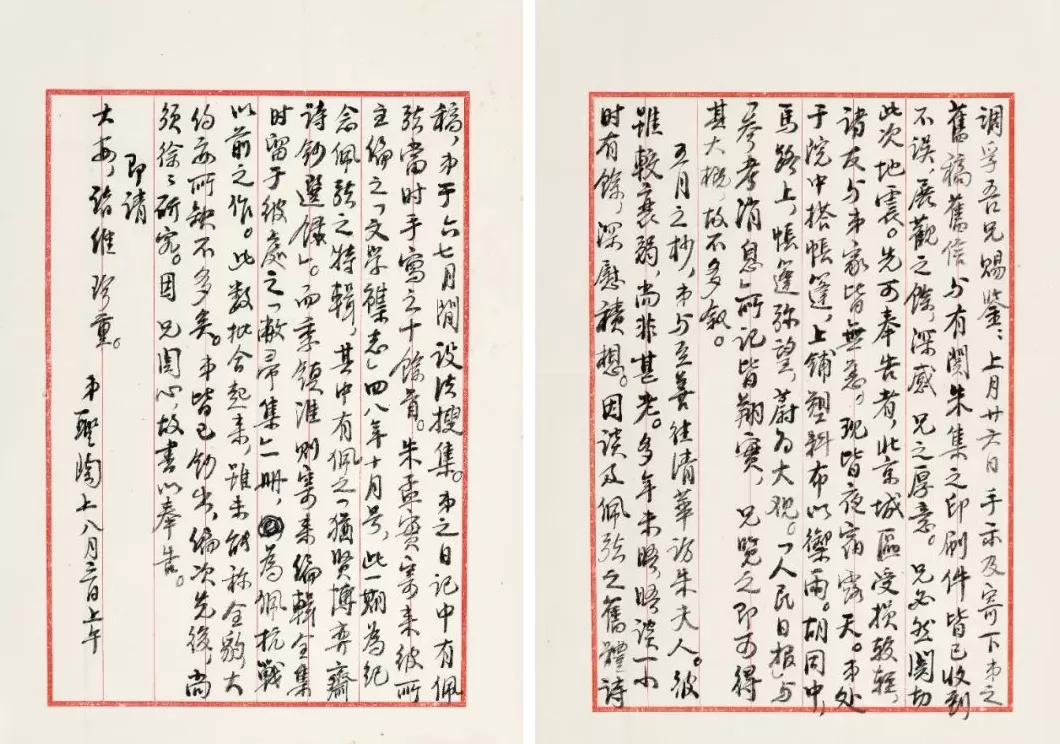 调孚吾兄赐鉴：上月廿六日手示及寄下弟之
旧稿旧信与有关朱集之印刷件皆已收到
不误，展观之馀，深感 兄之厚意。 兄必然关切
此次地震。先可奉告者，北京城区受损较轻，
诸友与弟家皆无恙。现皆夜宿露天。弟处
于院中搭帐篷，上铺塑料布以御雨。胡同中，
马路上，帐篷弥望，蔚为大观。「人民日报」与
「参考消息」所记皆翔实， 兄览之即可得
其大概，故不多叙。
五月之杪，弟与至善往清华访朱夫人。彼
虽较衰弱，尚非甚老。多年未晤，晤谈一小
时有馀，深慰积想。因谈及佩弦之旧体诗
稿，弟于六七月间设法搜集。弟之日记中有佩
弦当时手写之十馀首。朱孟实寄来彼所
主编之「文学杂志」四八年十月号，此一期为纪
念佩弦之特辑，其中有佩之「犹贤博弈斋
诗钞选录」。而季镇淮则寄来编辑全集
时留于彼处之「敝帚集」一册，为佩抗战
以前之作。此数批合起来，虽未能称全豹，大
约每所缺不多矣。弟皆已钞出，编次先后，尚
须徐徐研究。因 兄关心，故书以奉告。
即请
大安，诸维珍重。
弟圣陶上 八月三日上午